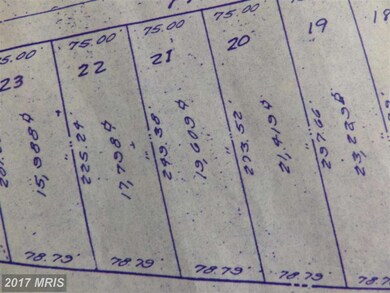 75.00
75.00
75.00
75.00
23
22
21
20
19
15,988⌀
225.24
17,798⌀
249.38
19,609⌀
273.52
21,419⌀
297.66
23,229⌀
78.79
78.79
78.79
78.79
© 2017 MRIS